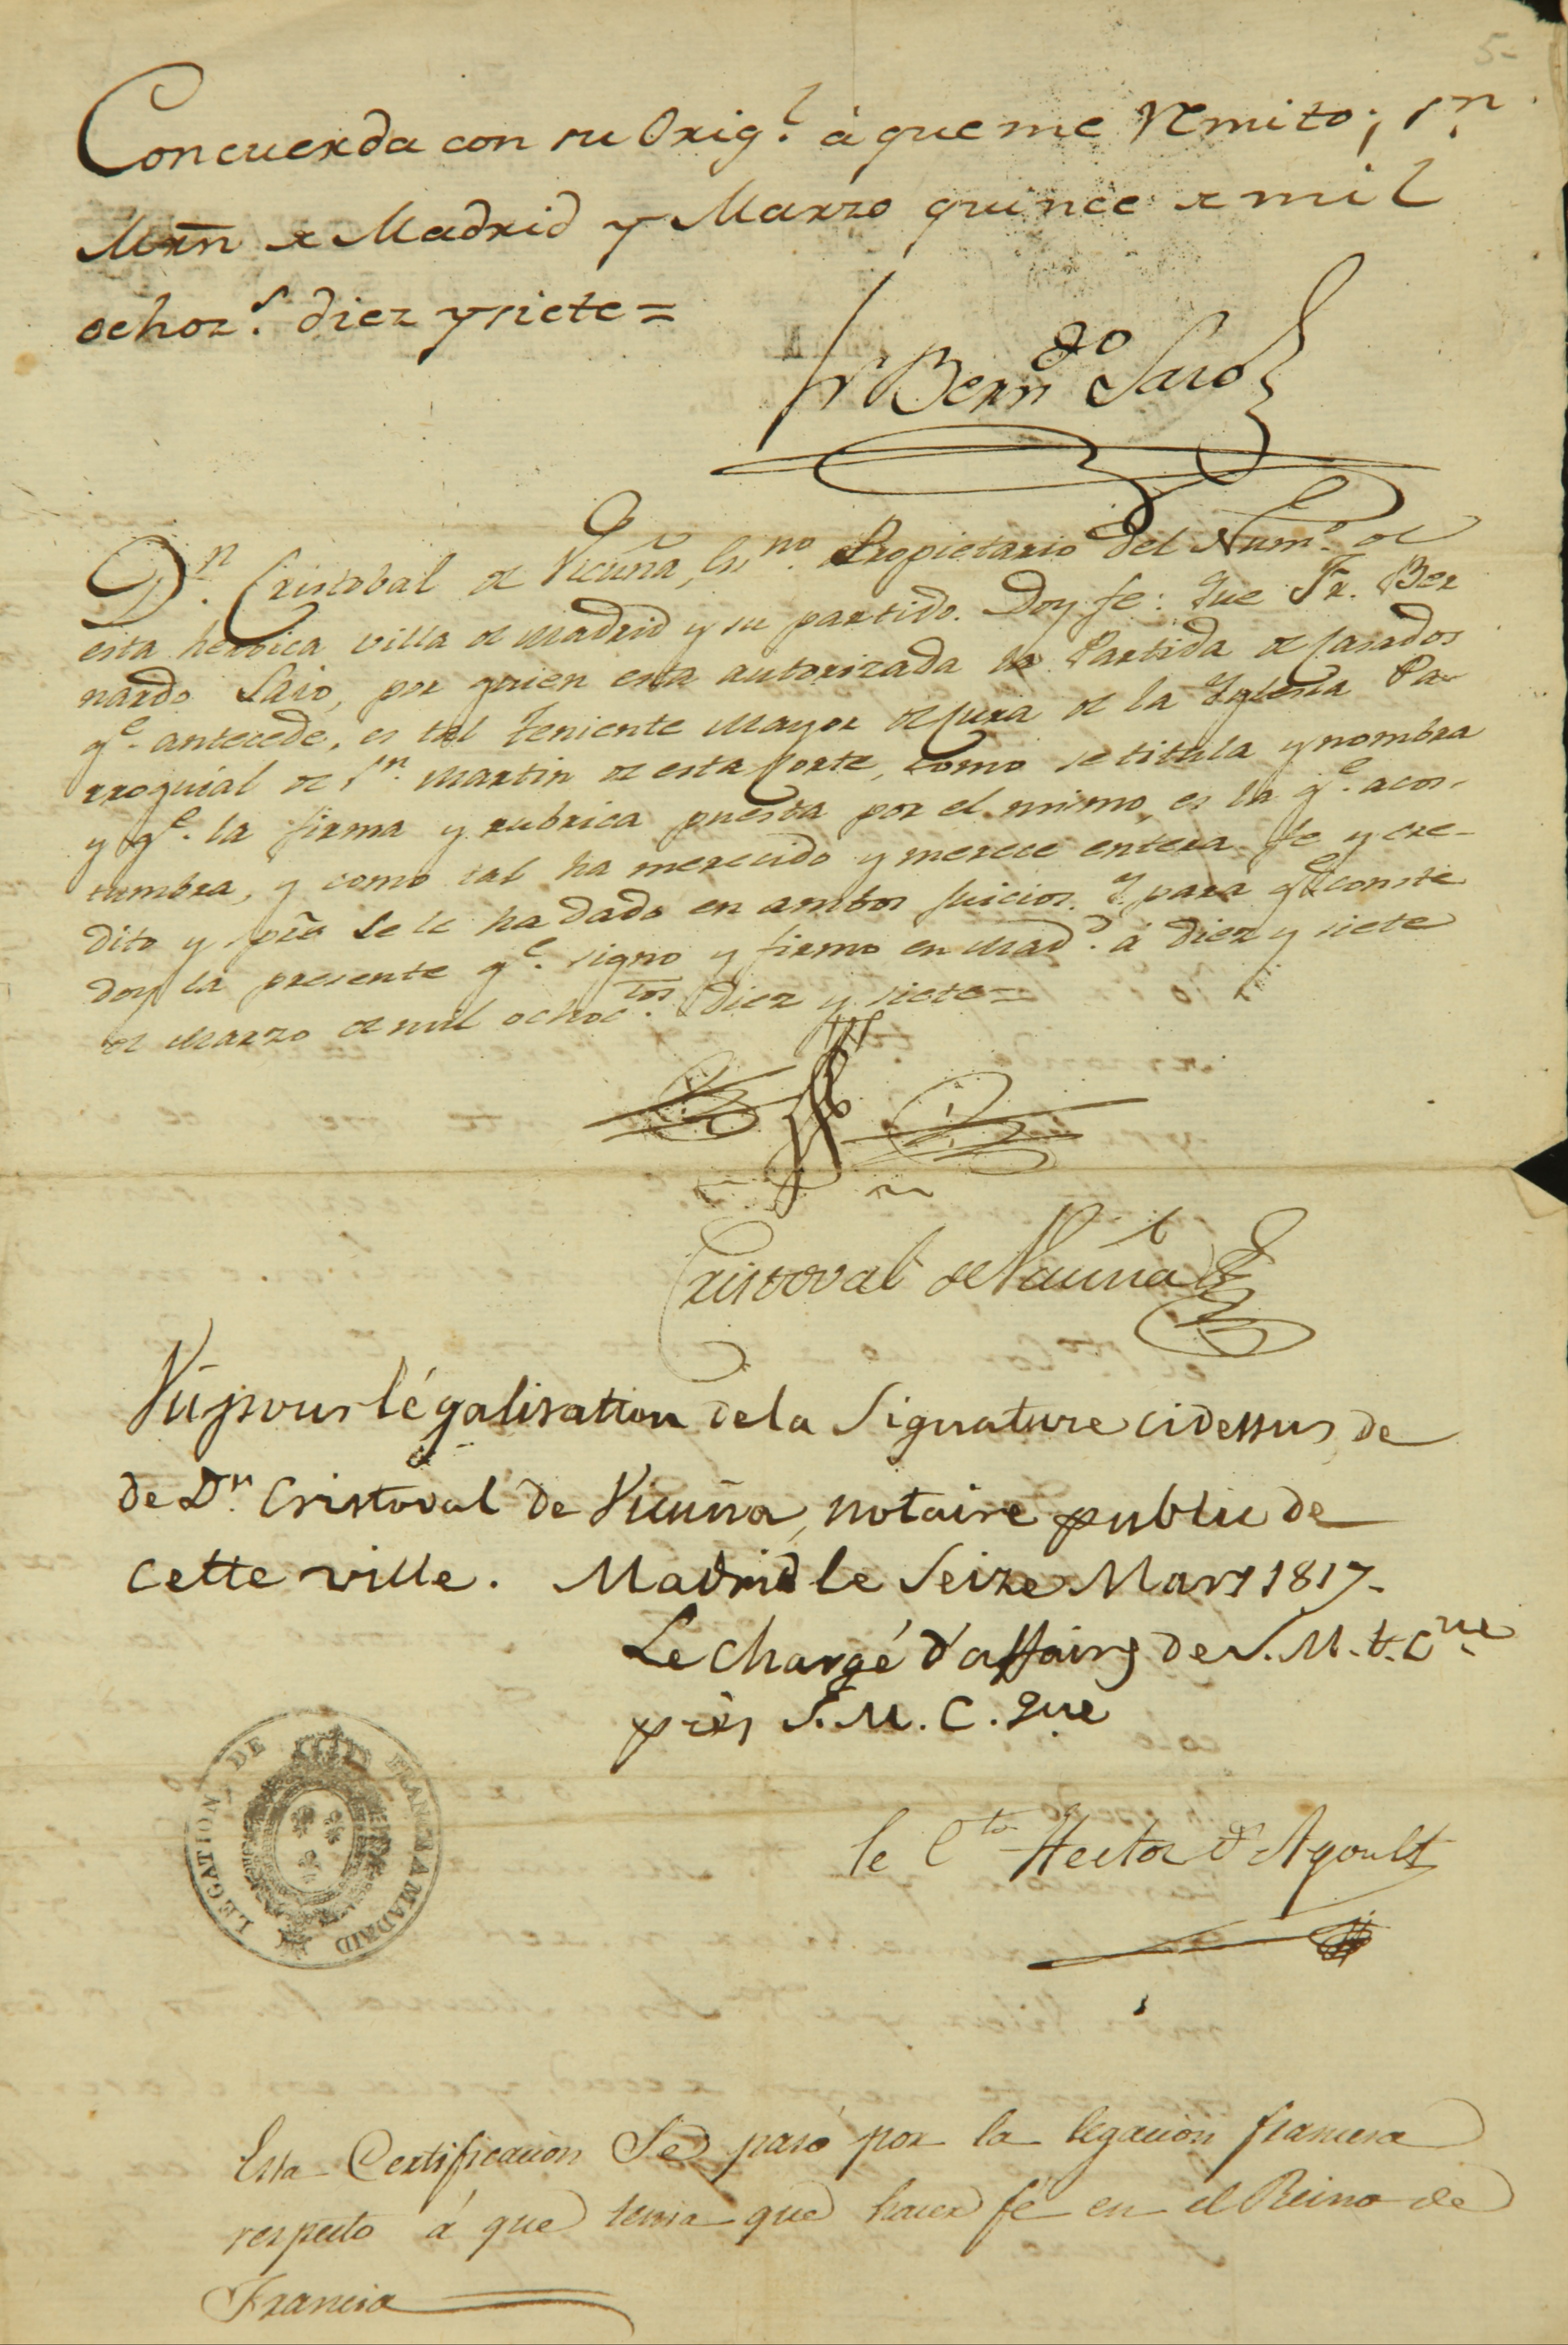 5-
Concuerda con su Orig.l à que me remito; Sn.
Mrn de Madrid y Marzo quince de mil
ochoz.s diez y siete =
Fr Bern.do Saro
Dn. Cristobal de Vicuña, Es.no Propietario del Num.o de
esta heroica villa de Madrid y su partido. Doy fe: Que Fr. Ber
nardo Saro, por quien esta autorizada la Partida de Casados
q.e antecede, es tal Teniente Mayor de Cura de la Yglesia Pa-
rroquial de Sn. Martin de esta Corte, como se titula y nombra
y q.e la firma y rubrica puesta por el mismo, es la q.e acos-
tumbra, y como tal ha merecido y merece entera fe y cre-
dito y spre se le ha dado en ambos Juicios. Y para q.e conste
doy la presente q.e signo y firmo en Mad.d á diez y siete
de Marzo de mil ochoc.tos diez y siete =
Cristoval de Vicuña
Vu pour légalisation de la Signature ci dessus de
de Dn. Cristoval de Vicuña, notaire public de
cette ville. Madrid le Seize Mars 1817.
Le chargé d'affaires de S. M. t. C.ne
près S. M. C. que
LEGATION DE FRANCE A MADRID
le Cte Hector d'Agoult
Esta Certificacion Se pasó por la legacion francesa
respecto á que tenia que hacer fé en el Reino de
Francia